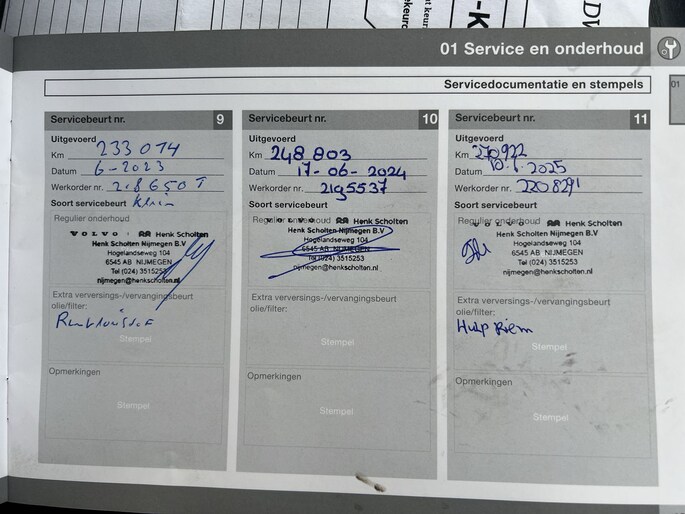 01 Service en onderhoud
Servicedocumentatie en stempels
01
Servicebeurt nr. 9
Uitgevoerd
Km 233 014
Datum 6-2023
Werkorder nr.
Soort servicebeurt klein
Regulier onderhoud
VOLVO Henk Scholten
Henk Scholten Nijmegen B.V
Hogelandseweg 104
6545 AB NIJMEGEN
Tel (024) 3515253
nijmegen@henkscholten.nl
Extra verversings-/vervangingsbeurt
olie/filter:
Remvloeistof
Stempel
Opmerkingen
Stempel
Servicebeurt nr. 10
Uitgevoerd
Km 248 803
Datum 17-06-2024
Werkorder nr. 2195537
Soort servicebeurt
Regulier onderhoud
VOLVO Henk Scholten
Henk Scholten Nijmegen B.V
Hogelandseweg 104
6545 AB NIJMEGEN
Tel (024) 3515253
nijmegen@henkscholten.nl
Extra verversings-/vervangingsbeurt
olie/filter:
Stempel
Opmerkingen
Stempel
Servicebeurt nr. 11
Uitgevoerd
Km 270922
Datum 2025
Werkorder nr. 2208291
Soort servicebeurt
Regulier onderhoud
VOLVO Henk Scholten
Henk Scholten Nijmegen B.V
Hogelandseweg 104
6545 AB NIJMEGEN
Tel (024) 3515253
nijmegen@henkscholten.nl
Extra verversings-/vervangingsbeurt
olie/filter:
Hulp Riem
Stempel
Opmerkingen
Stempel